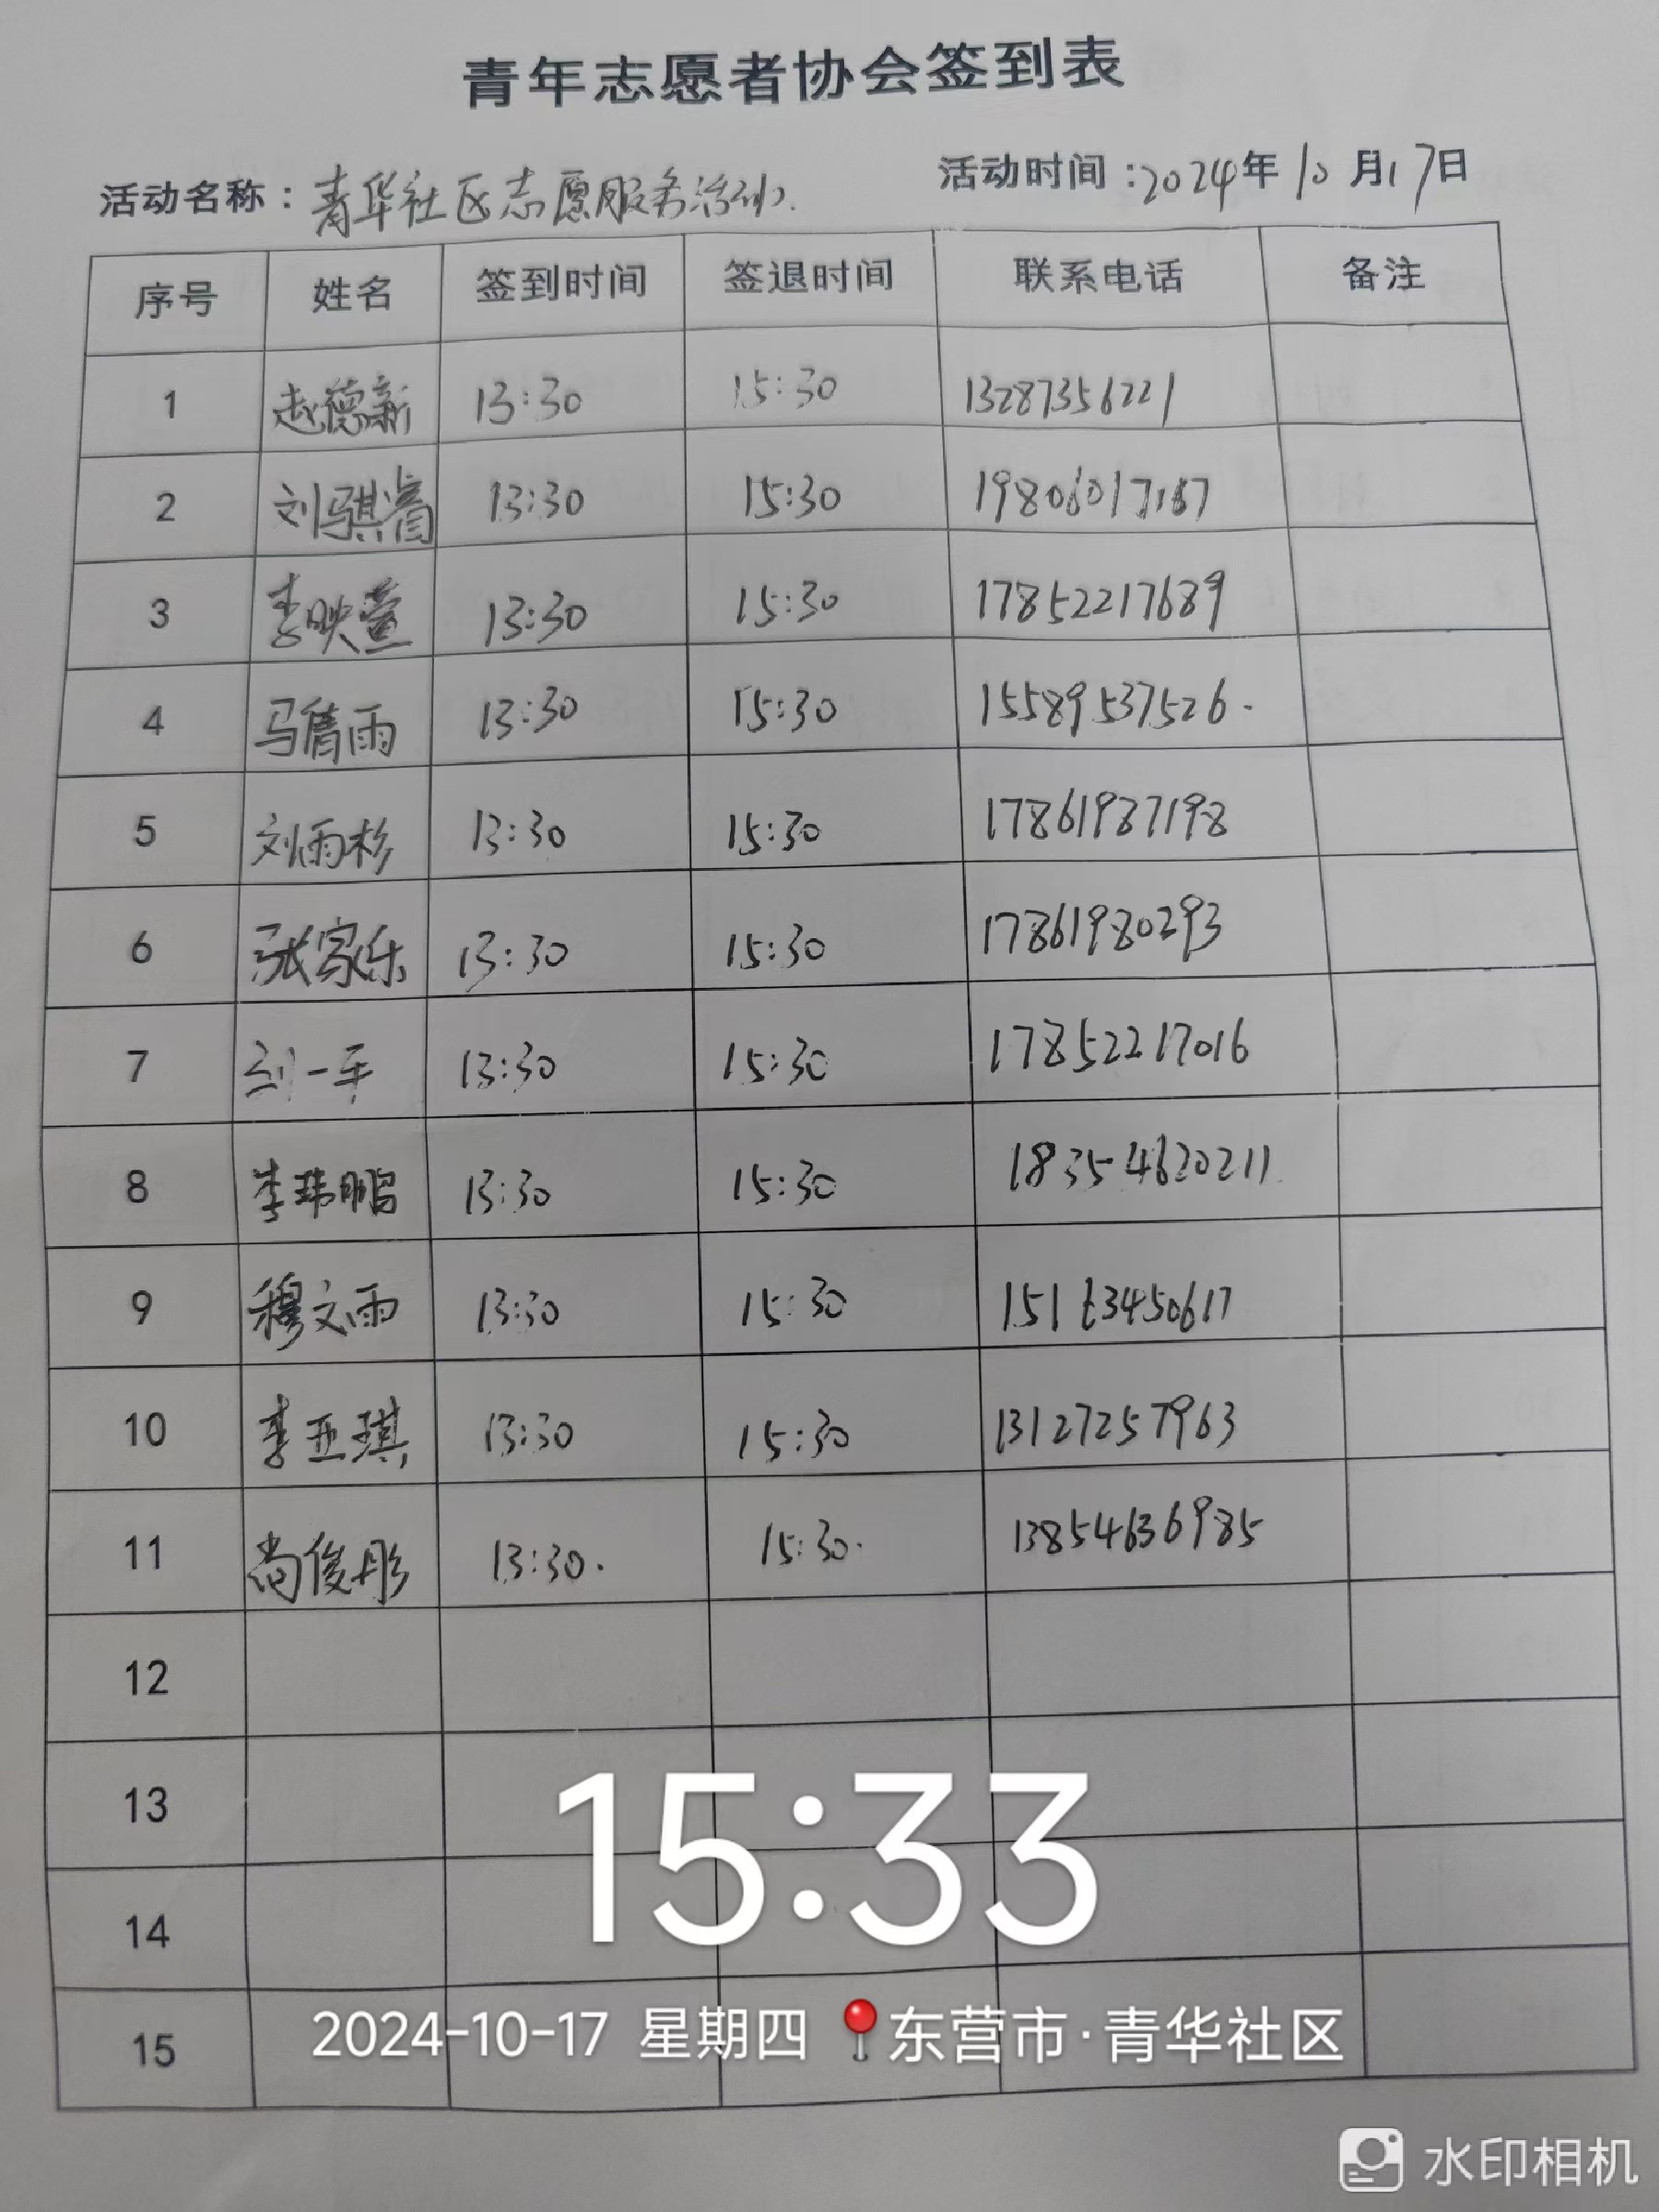 青年志愿者协会签到表
活动名称：青华社区志愿服务活动. 活动时间：2024年10月17日
序号 姓名 签到时间 签退时间 联系电话 备注
1 赵德新 13:30 15:30 13287356221
2 刘骐睿 13:30 15:30 19806017167
3 李映萱 13:30 15:30 17852217689
4 马雨 13:30 15:30 15589537526.
5 刘雨杉 13:30 15:30 17861987198
6 张家乐 13:30 15:30 17861980293
7 刘一平 13:30 15:30 17852217016
8 李玮鹏 13:30 15:30 18354620211
9 穆文雨 13:30 15:30 15163450617
10 李亚琪 13:30 15:30 13127257963
11 尚俊彤 13:30. 15:30. 13854636985
12
13
14
15
15:33
2024-10-17 星期四 东营市·青华社区
水印相机